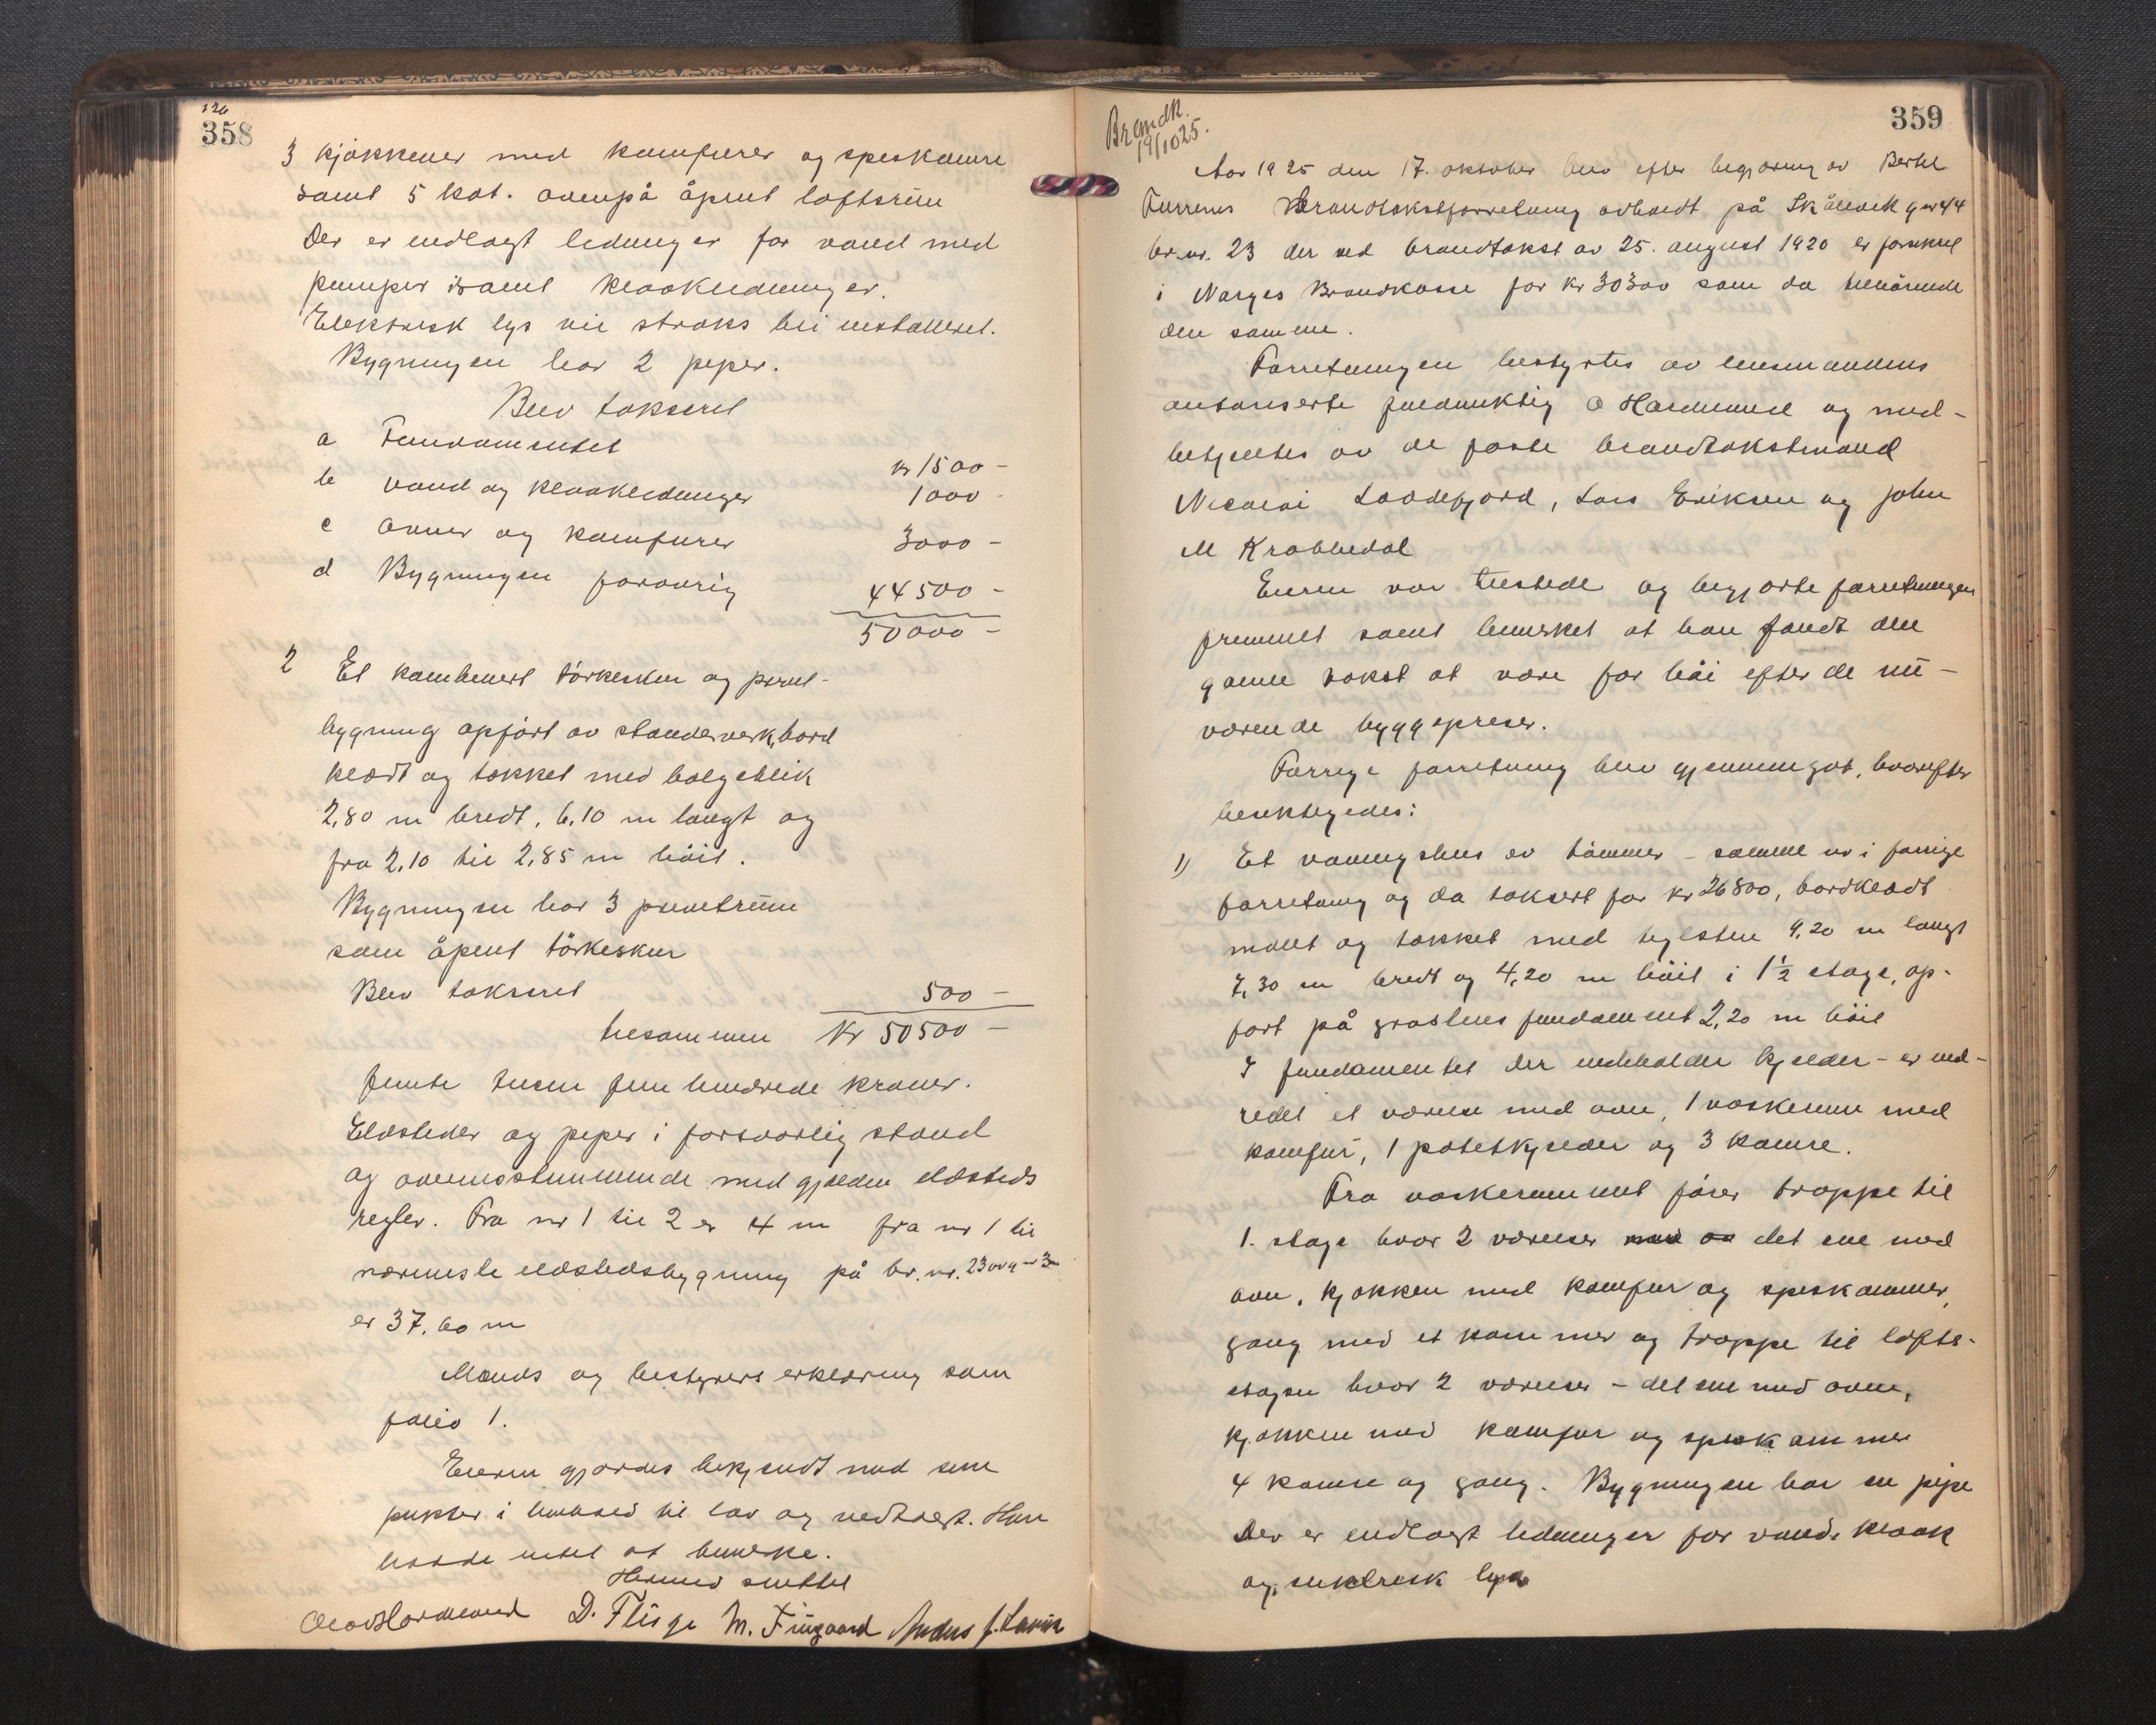 126
358
3 kjøkkener med komfurer og speskamre
samt 5 kot. ovenpå åpent loftsrum
Der er indlagt ledninger for vand med
pumper samt kloakledninger.
Elektrisk lys vil straks bli installeret.
Bygningen har 2 piper.
Blev taksert
a Fundamentet kr 1500 -
b vand og kloakledninger 1000 -
c ovner og komfurer 3000 -
d Bygningen forøvrig 44500 -
50000 -
2 Et kombinert tørkeskur og privet-
bygning opført av stenderverk, bord
klædt og tækket med bølgeblik
2,80 m bredt, 6,10 m langt og
fra 2,10 til 2,85 m høit.
Bygningen har 3 privetrum
som åpent tørkeskur
Blev taksert 500 -
tilsammen Kr 50500 -
femti tusen fem hundrede kroner.
Ildsteder og piper i forsvarlig stand
og overensstemmende med gjælden ildsteds
regler. Fra nr 1 til 2 er 4 m fra nr 1 til
nærmeste ildstedsbygning på br. nr. 23 av g nr 3
er 37,60 m
Mænds og bestyrers erklæring som
folio 1.
Eieren gjordes bekjendt med sine
pligter i henhold til lov og vedtægt. Han
hadde intet at bemerke.
Hermed sluttet
Olav Hordnund D. Flisge M. Fingaard Anders J. Larvik
Brandk.
19/10 25.
359
Aar 1925 den 17. oktober blev efter begjæring av Bertel
Furrenes Brandtakstforretning avholdt på Skålevik g nr 44
br. nr. 23 der ved brandtakst av 25. august 1920 er forsikret
i Norges Brandkasse for kr 30300 som da tilhørende
den samme.
Forretningen bestyrtes av lensmandens
autoriserte fuldmektig O Hordnund og med-
betjentes av de faste brandtakstmænd
Nicolai Loddefjord, Lars Eriksen og John
M Krabbedal
Eieren var tilstede og begjærte forretningen
fremmet samt bemerket at han fandt den
gamle takst at være for høi efter de nu-
værende byggepriser.
Forrige forretning blev gjennemgåt, hvorefter
besiktigedes:
1) Et våningshus av tømmer - samme nr i forrige
forretning og da taksert for kr 26800, bordklædt
malt og tækket med teglsten 9,20 m langt
7,30 m bredt og 4,20 m høit i 1½ etage, op-
ført på gråstens fundament 2,20 m høit
I fundamentet der indeholder kjelder - er ind-
redet et værelse med ovn, 1 vaskerum med
komfur, 1 potetkjelder og 3 kamre.
Fra vaskerummet fører trappe til
1. etage hvor 2 værelser det ene med
ovn, kjøkken med komfur og speskammer,
gang med et kammer og trappe til lofts-
etagen hvor 2 værelser - det ene med ovn,
kjøkken med komfur og speskammer
4 kamre og gang. Bygningen har en pipe
Der er indlagt ledninger for vand, kloak
og elektrisk lys